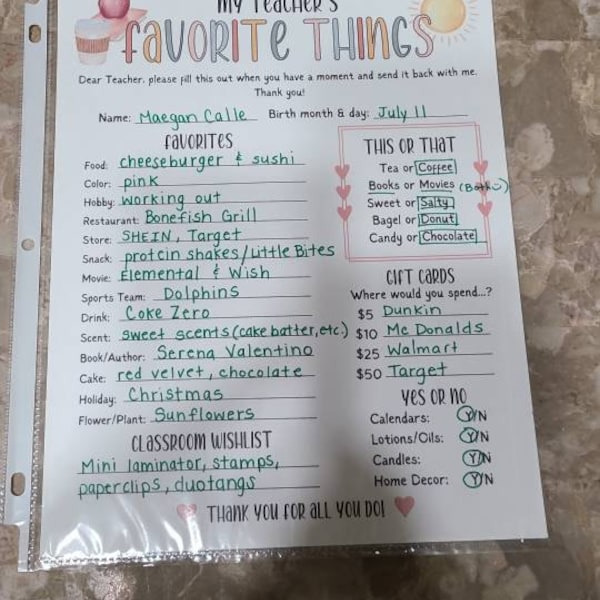 MY TEACHER'S
FAVORITE THINGS
Dear Teacher, please fill this out when you have a moment and send it back with me.
Thank you!
Name: Maegan Calle Birth month & day: July 11
FAVORITES
Food: cheeseburger & sushi
Color: pink
Hobby: working out
Restaurant: Bonefish Grill
Store: SHEIN, Target
Snack: protein shakes/Little Bites
Movie: Elemental & Wish
Sports Team: Dolphins
Drink: Coke Zero
Scent: sweet scents (cake batter, etc.)
Book/Author: Serena Valentino
Cake: red velvet, chocolate
Holiday: Christmas
Flower/Plant: Sunflowers
CLASSROOM WISHLIST
Mini laminator, stamps,
paperclips, duotangs
THIS OR THAT
Tea or Coffee
Books or Movies (Both)
Sweet or Salty
Bagel or Donut
Candy or Chocolate
GIFT CARDS
Where would you spend...?
$5 Dunkin
$10 Mc Donalds
$25 Walmart
$50 Target
YES OR NO
Calendars: Y/N
Lotions/Oils: Y/N
Candles: Y/N
Home Decor: Y/N
THANK YOU FOR ALL YOU DO!